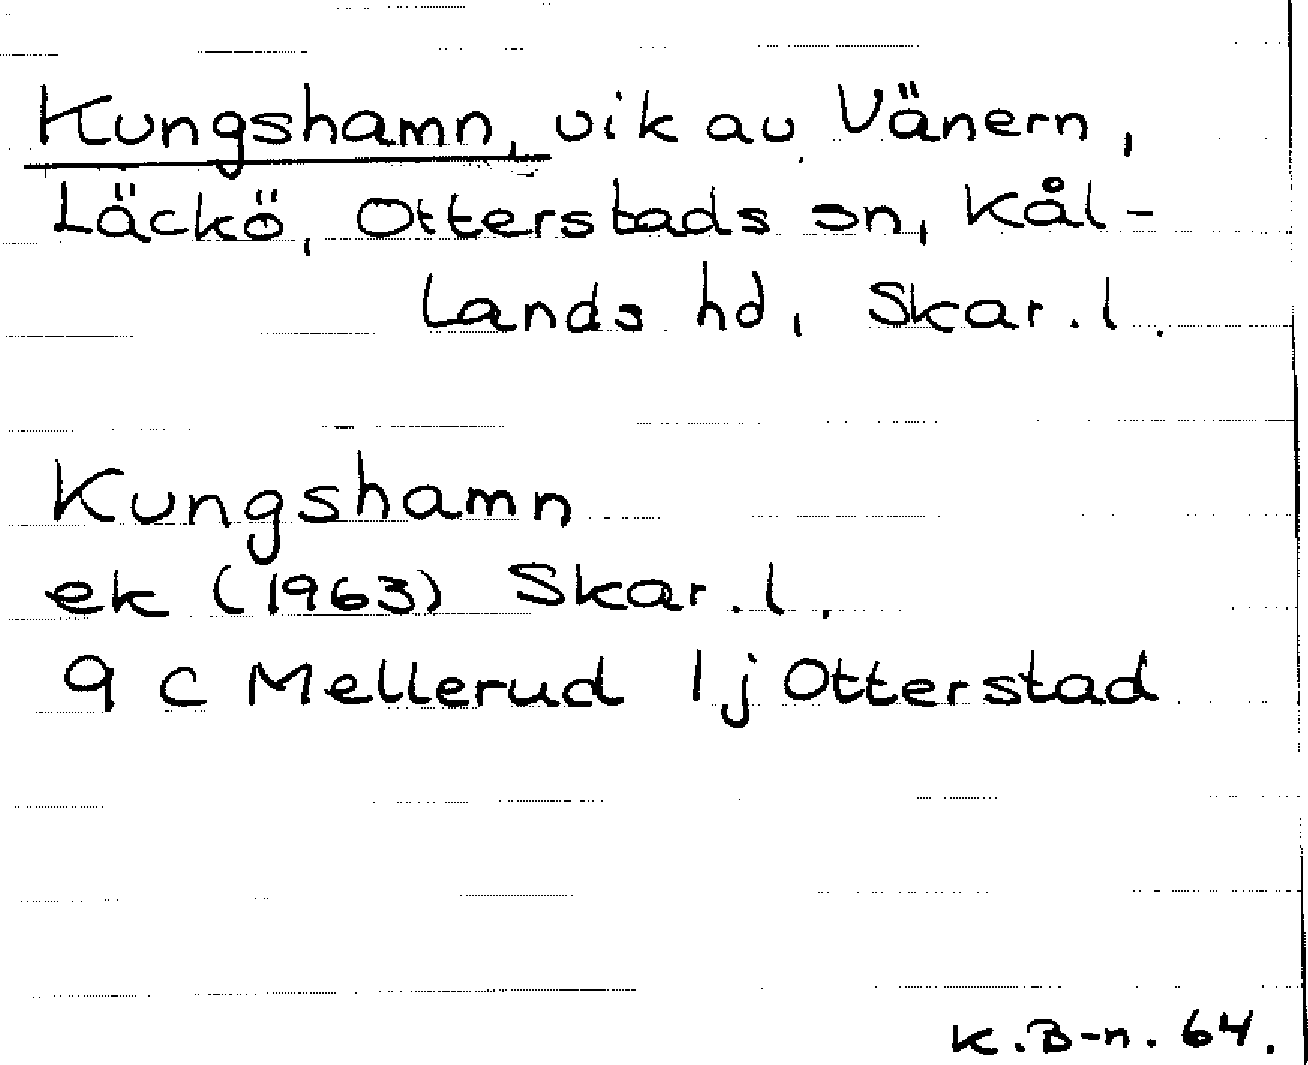 Kungshamn, vik av Vänern,
Läckö, Otterstads sn, Kål-
lands hd, Skar.l.
Kungshamn
ek (1963) Skar.l.
9 C Mellerud 1j Otterstad
K.B-n. 64.